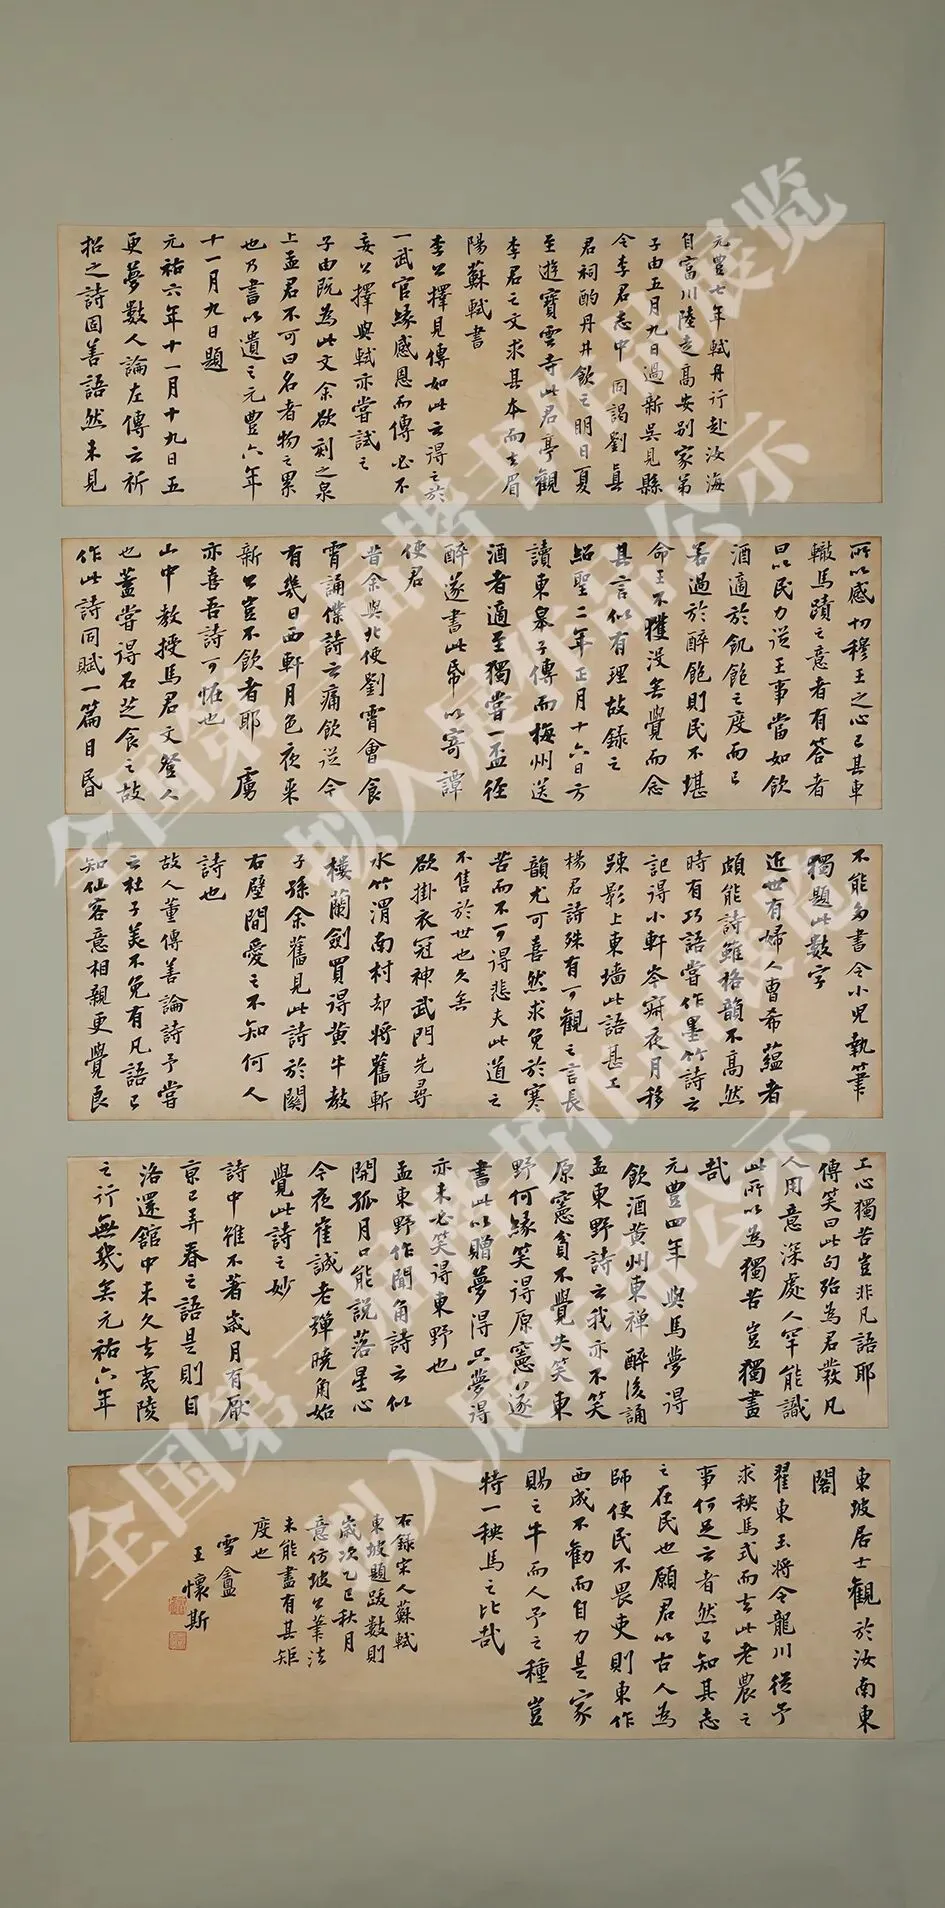 元豊七年軾舟行赴汝海
自富川陸走高安別家弟
子由五月九日過新吳見縣
令李君志中同謁劉真
君祠酌丹井飲之明日夏
至遊寶雲寺此君亭觀
李君之文求其本而去眉
陽蘇軾書
李公擇見傳如此云得之於
一武官緣感恩而傳必不
妄公擇與軾亦嘗試之
子由既為此文余欲刻之泉
上孟君不可曰名者物之累
也乃書以遺之元豊六年
十一月九日題
元祐六年十一月十九日五
更夢數人論左傳云祈
招之詩固善語然未見
所以感切穆王之心已其車
轍馬蹟之意者有答者
曰以民力從王事當如飲
酒適於飢飽之度而已
若過於醉飽則民不堪
命王不獲沒矣覺而念
其言似有理故錄之
紹聖二年正月十六日方
讀東皋子傳而梅州送
酒者適至獨嘗一盃徑
醉遂書此帋以寄譚
使君
昔余與北使劉霄會食
霄誦僕詩云痛飲從今
有幾日西軒月色夜來
新公豈不飲者耶 虜
亦喜吾詩可恠也
山中教授馬君文登人
也蓋嘗得石芝食之故
作此詩同賦一篇目昏
不能多書令小兒執筆
獨題此數字
近世有婦人曹希蘊者
頗能詩雖格韻不高然
時有巧語嘗作墨竹詩云
記得小軒岑寂夜月移
踈影上東墻此語甚工
楊君詩殊有可觀之言長
韻尤可喜然求免於寒
苦而不可得悲夫此道之
不售於世也久矣
欲掛衣冠神武門先尋
水竹渭南村却將舊斬
樓蘭劍買得黃牛教
子孫余舊見此詩於關
右壁間愛之不知何人
詩也
故人董傳善論詩予嘗
云杜子美不免有凡語已
知仙客意相親更覺良
工心獨苦豈非凡語耶
傳笑曰此句殆為君發凡
人用意深處人罕能識
此所以為獨苦豈獨畫
哉
元豊四年與馬夢得
飲酒黃州東禅醉後誦
孟東野詩云我亦不笑
原憲貧不覺失笑東
野何緣笑得原憲遂
書此以贈夢得只夢得
亦未必笑得東野也
孟東野作聞角詩云似
開孤月口能說落星心
今夜崔誠老彈曉角始
覺此詩之妙
詩中雖不著歲月有厭
京已弄春之語是則自
洛還館中未久去夷陵
之行無幾矣元祐六年
東坡居士觀於汝南東
閣
翟東玉將令龍川從予
求秧馬式而去此老農之
事何足云者然已知其志
之在民也願君以古人為
師使民不畏吏則東作
西成不勸而自力是家
賜之牛而人予之種豈
特一秧馬之比哉
右錄宋人蘇軾
東坡題跋數則
歲次乙巳秋月
意仿坡公筆法
未能盡有其矩
度也
雪盦
王懷斯
全国第二届牌书作品展览
拟入展作品公示
全国第二届牌书作品展览
拟入展作品公示